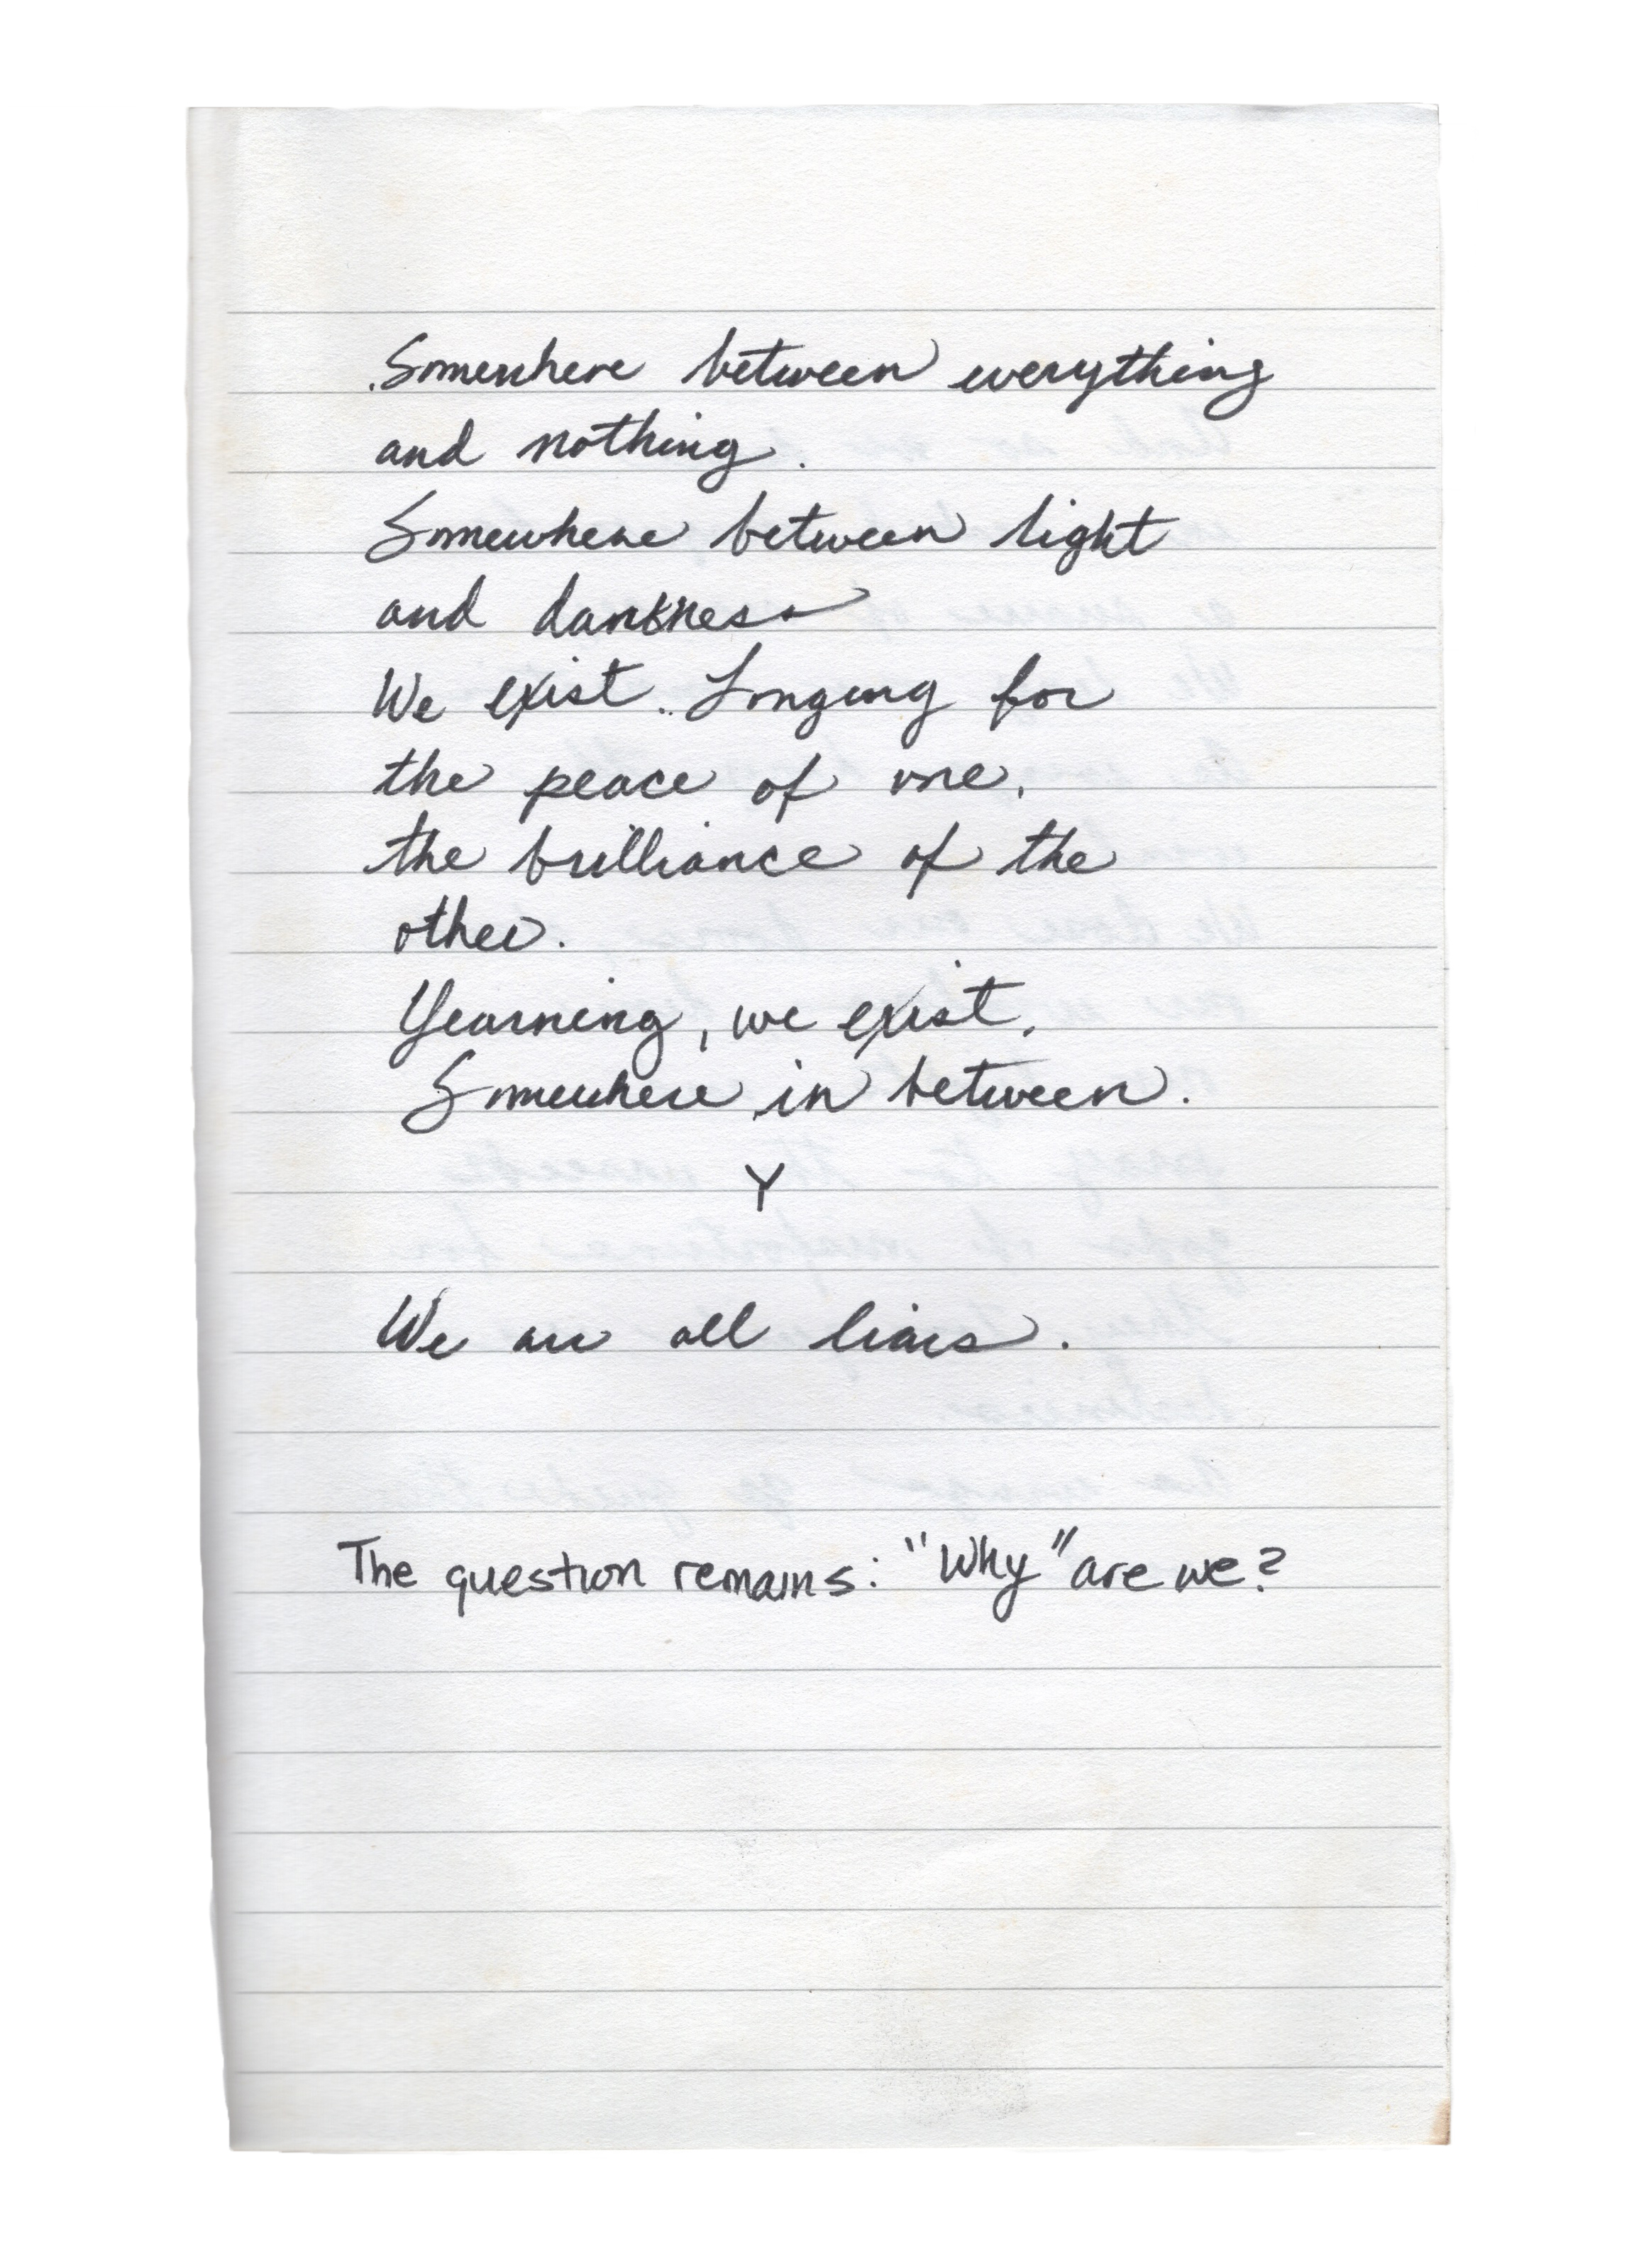 Somewhere between everything
and nothing.
Somewhere between light
and darkness
We exist. Longing for
the peace of one,
the brilliance of the
other.
Yearning, we exist.
Somewhere in between.
Y
We are all liars.
The question remains: "Why" are we?